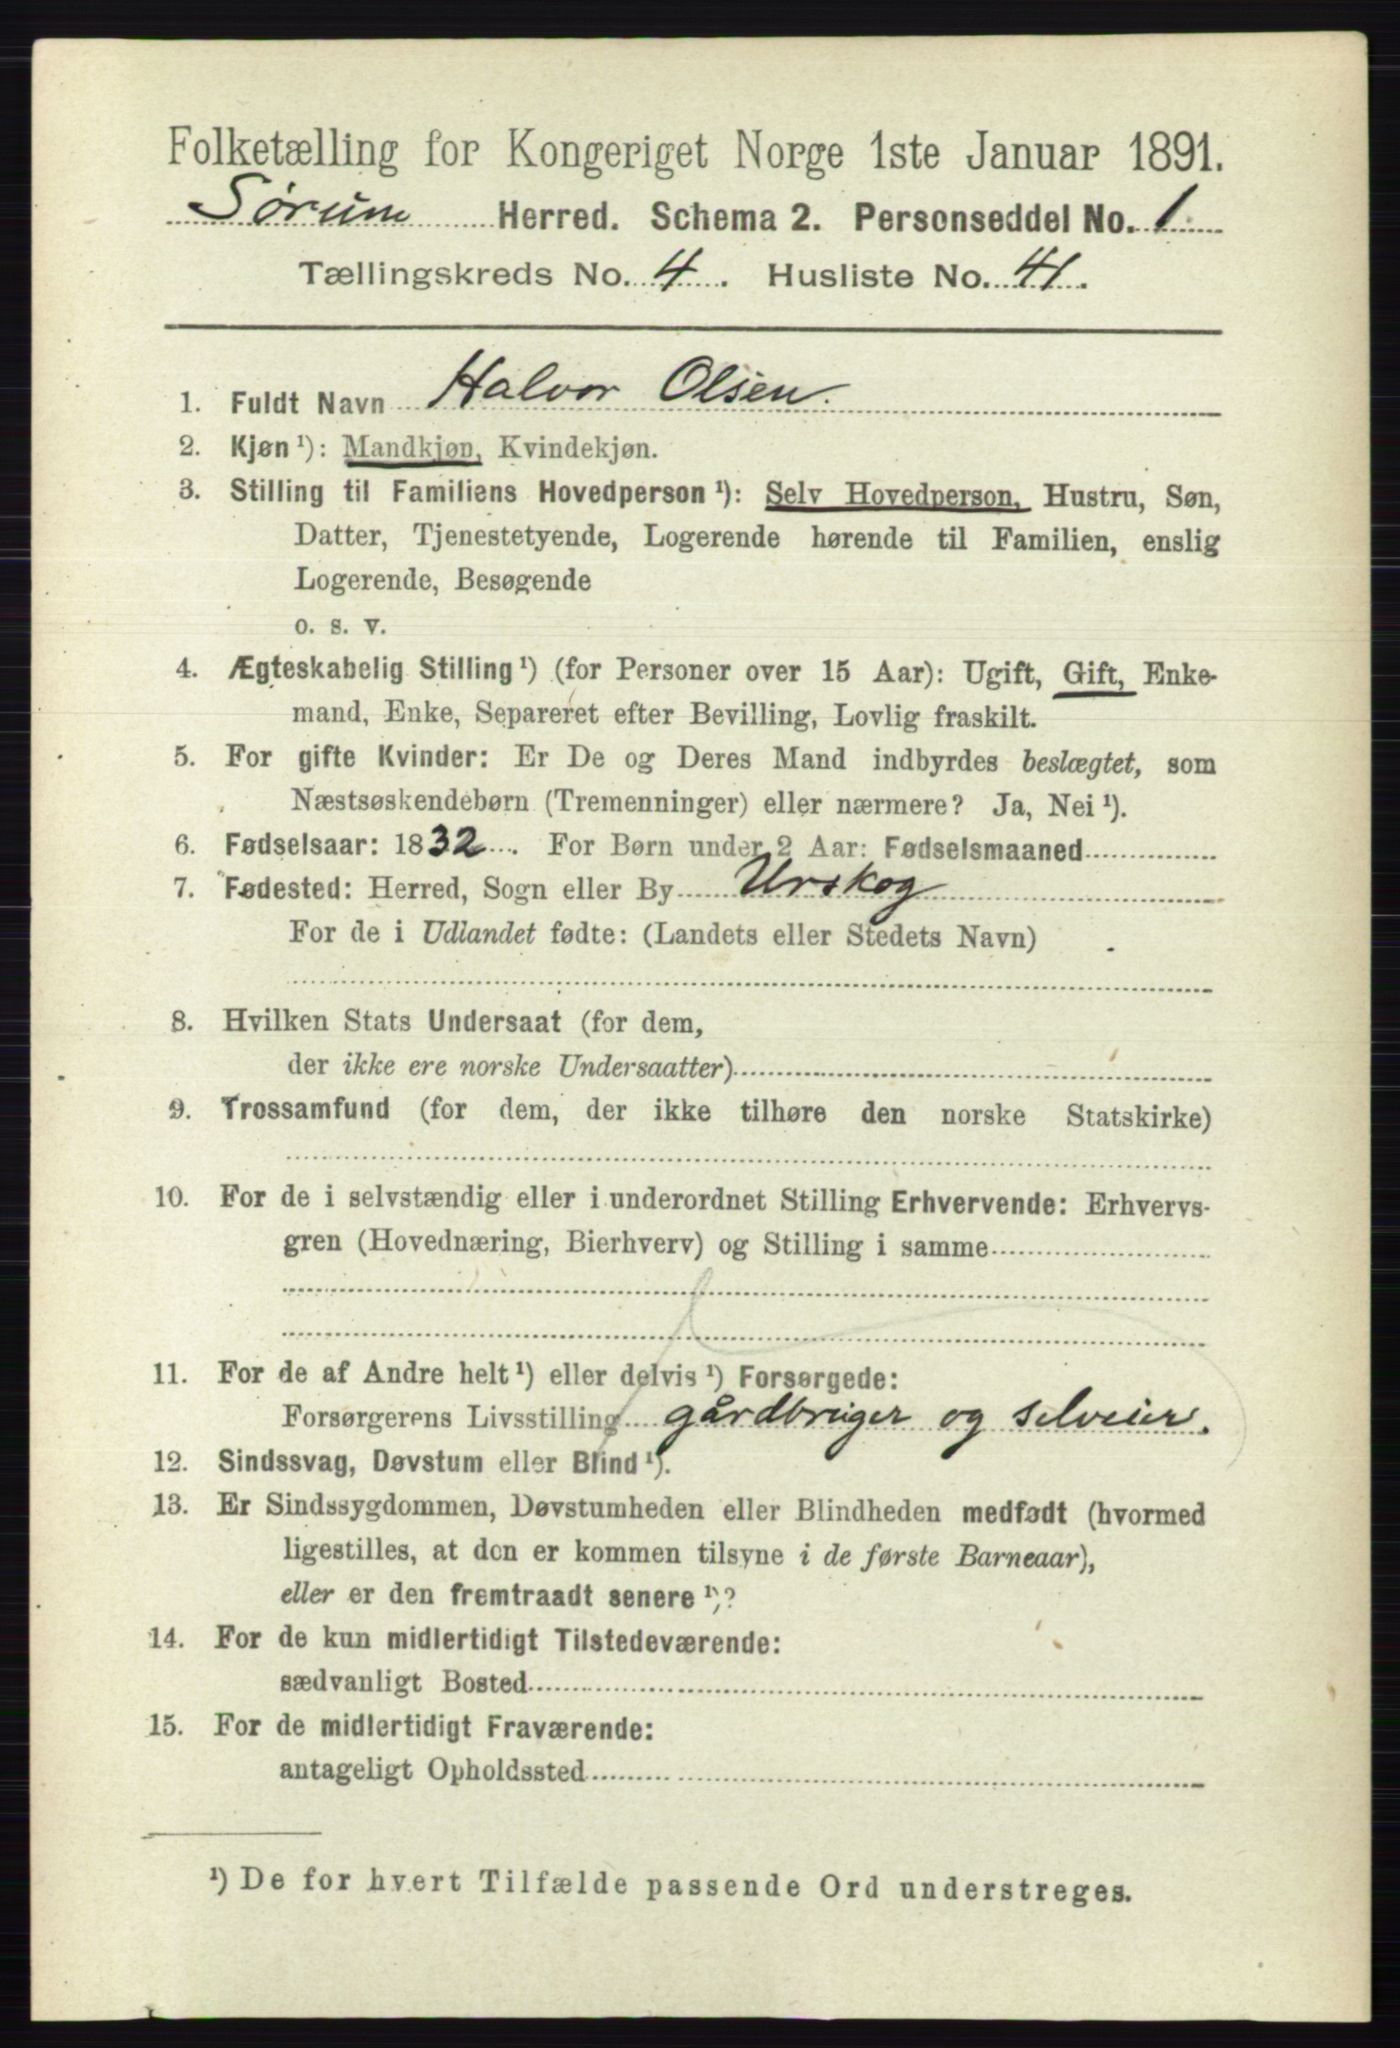 Folketælling for Kongeriget Norge 1ste Januar 1891.
Sørum Herred. Schema 2. Personseddel No. 1
Tællingskreds No. 4. Husliste No. 41.
1. Fuldt Navn Halvor Olsen.
2. Kjøn¹): Mandkjøn, Kvindekjøn.
3. Stilling til Familiens Hovedperson¹): Selv Hovedperson, Hustru, Søn,
Datter, Tjenestetyende, Logerende hørende til Familien, enslig
Logerende, Besøgende
o. s. v.
4. Ægteskabelig Stilling¹) (for Personer over 15 Aar): Ugift, Gift, Enke-
mand, Enke, Separeret efter Bevilling, Lovlig fraskilt.
5. For gifte Kvinder: Er De og Deres Mand indbyrdes beslægtet, som
Næstsøskendebørn (Tremenninger) eller nærmere? Ja, Nei¹).
6. Fødselsaar: 1832. For Børn under 2 Aar: Fødselsmaaned
7. Fødested: Herred, Sogn eller By Urskog
For de i Udlandet fødte: (Landets eller Stedets Navn)
8. Hvilken Stats Undersaat (for dem,
der ikke ere norske Undersaatter)
9. Trossamfund (for dem, der ikke tilhøre den norske Statskirke)
10. For de i selvstændig eller i underordnet Stilling Erhvervende: Erhvervs-
gren (Hovednæring, Bierhverv) og Stilling i samme
11. For de af Andre helt¹) eller delvis¹) Forsørgede:
Forsørgerens Livsstilling gårdbruger og selveier.
12. Sindssvag, Døvstum eller Blind¹).
13. Er Sindssygdommen, Døvstumheden eller Blindheden medfødt (hvormed
ligestilles, at den er kommen tilsyne i de første Barneaar),
eller er den fremtraadt senere¹)?
14. For de kun midlertidigt Tilstedeværende:
sædvanligt Bosted
15. For de midlertidigt Fraværende:
antageligt Opholdssted
¹) De for hvert Tilfælde passende Ord understreges.